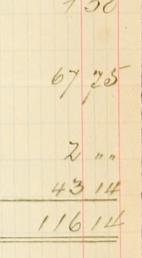 50
67 75
2 " "
43 14
116 14